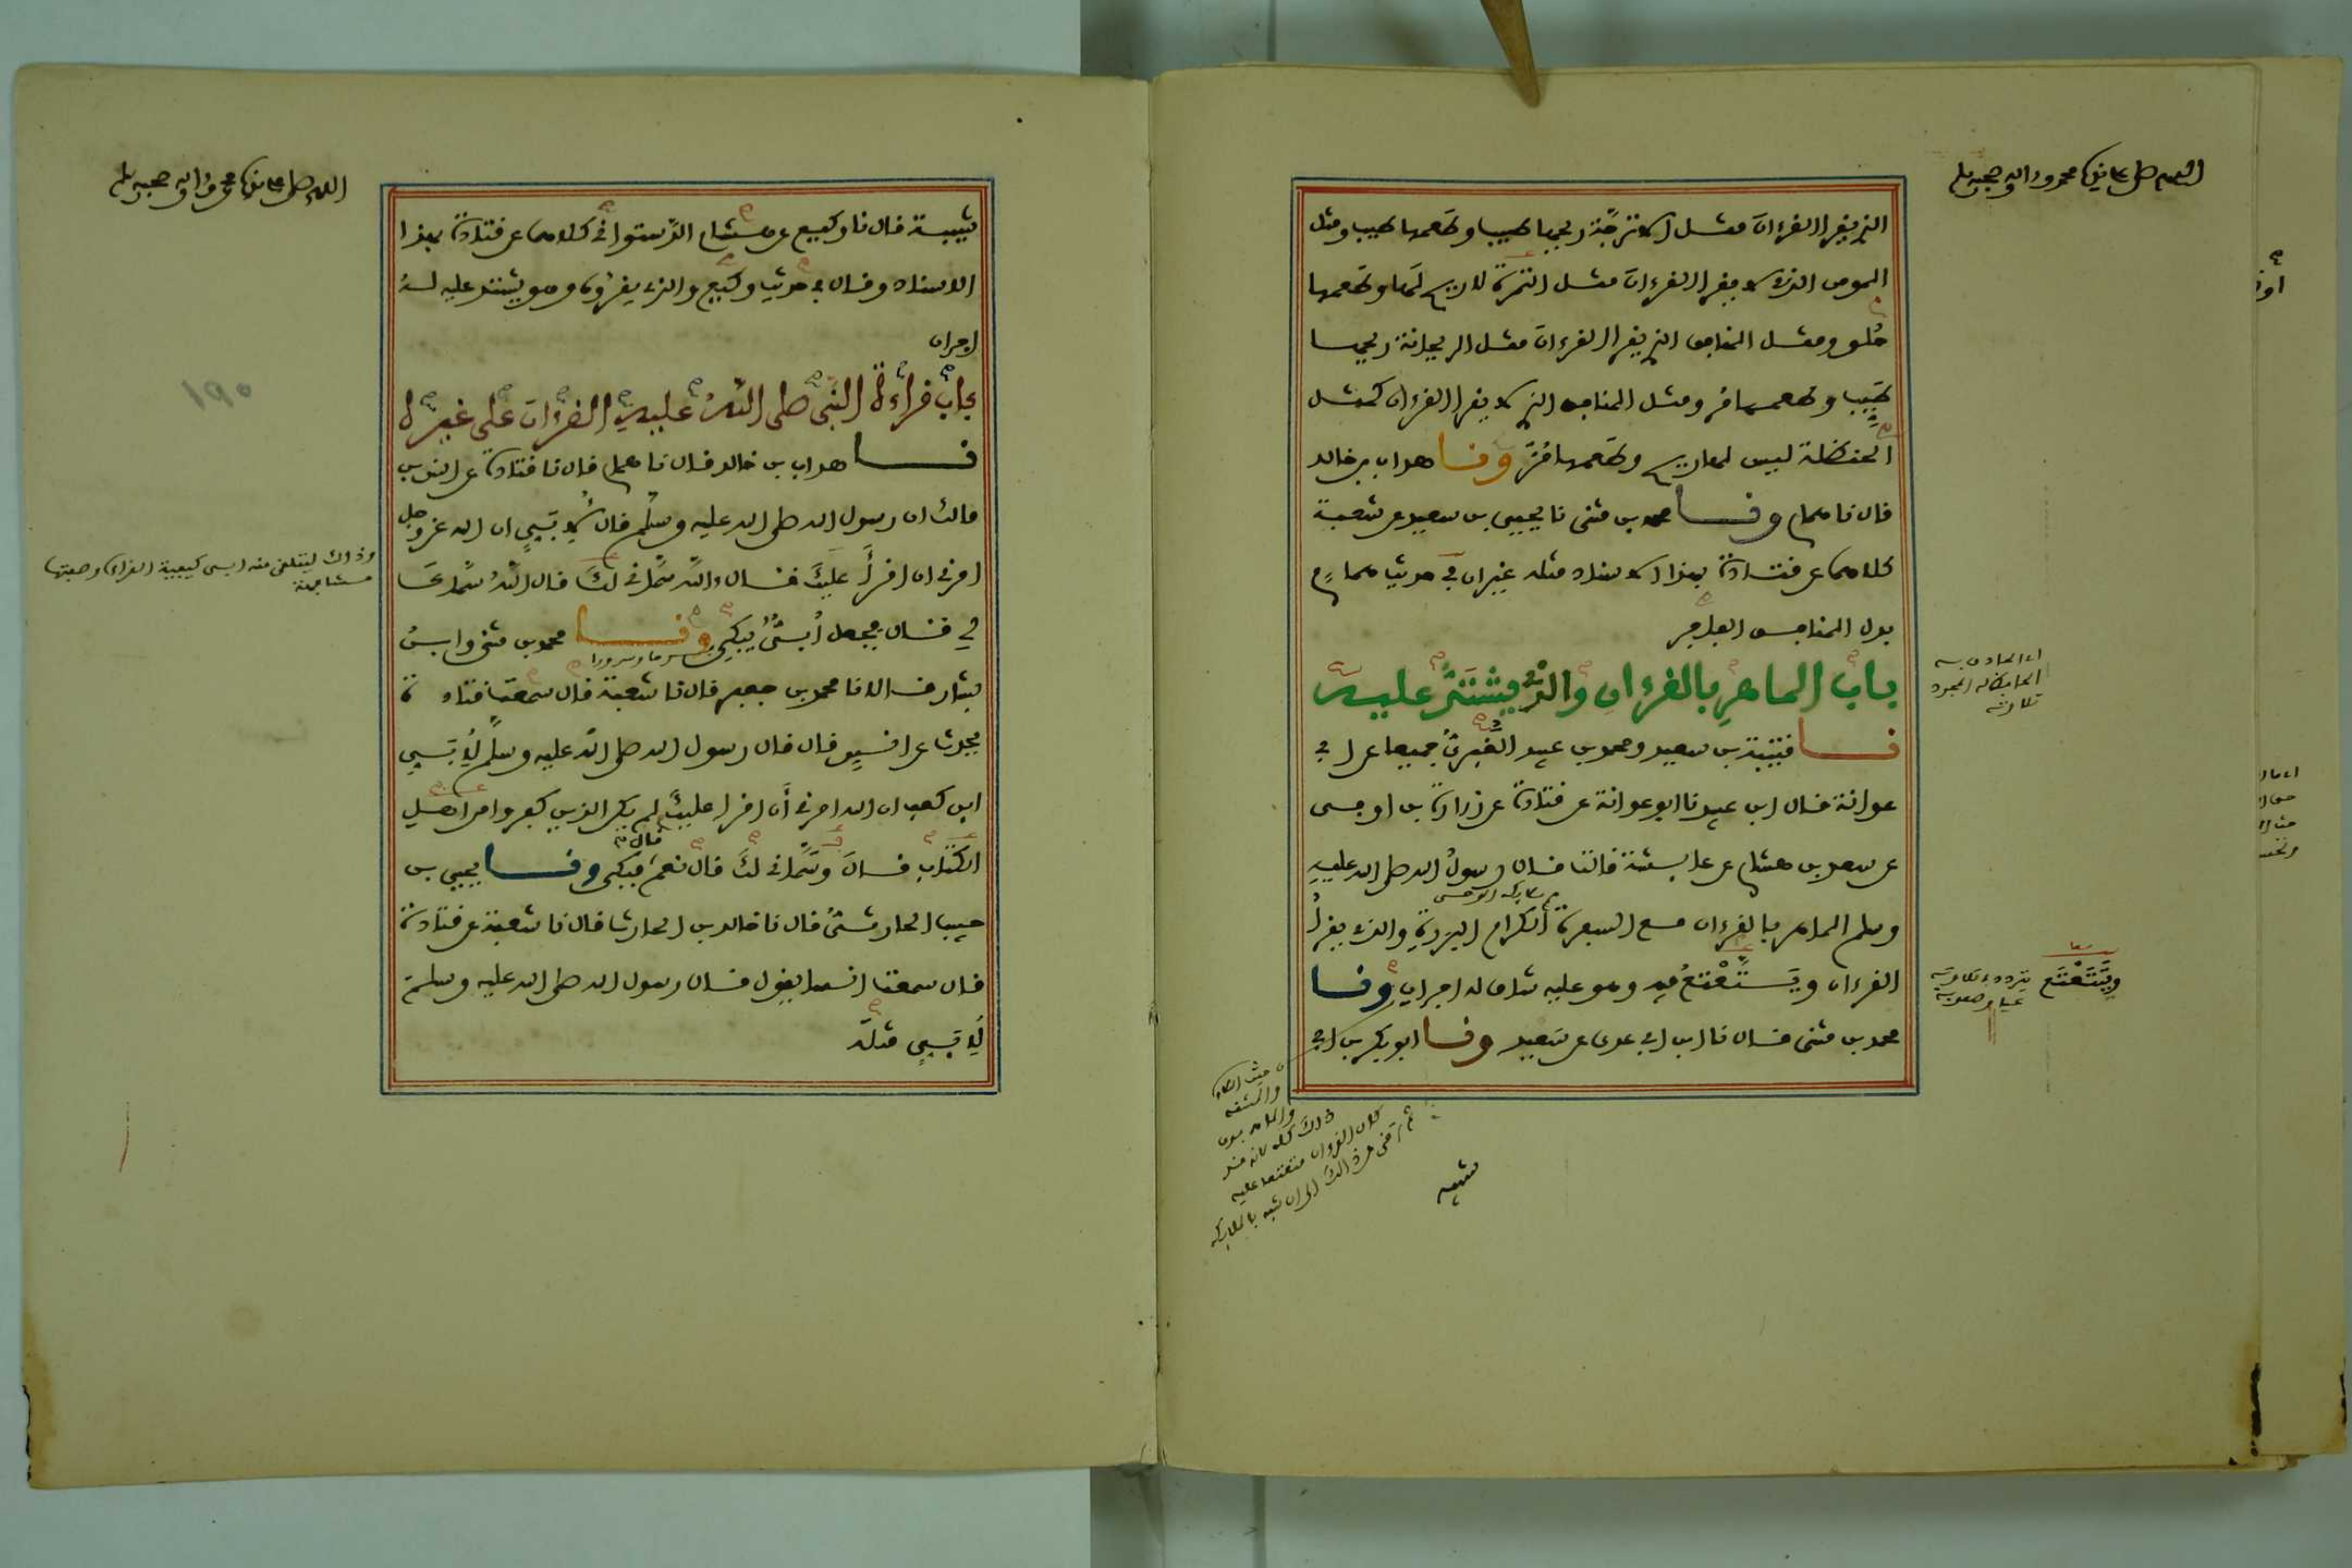 اللهم صل على سيدنا محمد وءاله وصحبه وسلم
الذي يقرا القرءان مثل الاترجة ريحها طيب وطعمها طيب ومثل
المومن الذي لا يقرا القرءان مثل التمرة لا ريح لها وطعمها
حلو ومثل المنافق الذي يقرا القرءان مثل الريحانة ريحها
طيب وطعمها مر ومثل المنافق الذي لا يقرا القرءان كمثل
الحنظلة ليس لها ريح وطعمها مر ونا هداب بن خالد
قال نا همام ونا محمد بن مثنى نا يحيى بن سعيد عن شعبة
كلاهما عن قتادة بهذا الاسناد مثله غير ان في حديث همام
بدل المنافق الفاجر
باب الماهر بالقرءان والذي يشتد عليه
نا قتيبة بن سعيد ومحمد بن عبيد الغبري جميعا عن ابي
عوانة قال ابن عبيد نا ابو عوانة عن قتادة عن زرارة بن اوفى
عن سعد بن هشام عن عايشة قالت قال رسول الله صلى الله عليه
وسلم الماهر بالقرءان مع السفرة الكرام البررة والذي يقرا
القرءان ويتتعتع فيه وهو عليه شاق له اجران ونا
محمد بن مثنى قال نا ابن ابي عدي عن سعيد ونا ابو بكر بن ابي
ويتتعتع
شيبة
اللهم صل على سيدنا محمد وءاله وصحبه وسلم
شيبة قال نا وكيع عن هشام الدستوائي كلاهما عن قتادة بهذا
الاسناد وقال في حديث وكيع والذي يقرؤه وهو يشتد عليه له
اجران
باب قراءة النبي صلى الله عليه القرءان على غيره
نا هداب بن خالد قال نا همام قال نا قتادة عن انس بن
مالك ان رسول الله صلى الله عليه وسلم قال لابي ان الله عز وجل
امرني ان اقرأ عليك قال ءالله سماني لك قال الله سماك
لي قال فجعل أبي يبكي ونا محمد بن مثنى وابن
بشار قالا نا محمد بن جعفر قال نا شعبة قال سمعت قتادة
يحدث عن انس قال قال رسول الله صلى الله عليه وسلم لأبي
ابن كعب ان الله امرني أن اقرا عليك لم يكن الذين كفروا من اهل
الكتاب قال وسماني لك قال نعم قال فبكى ونا يحيى بن
حبيب الحارثي قال نا خالد بن الحارث قال نا شعبة عن قتادة
قال سمعت انسا يقول قال رسول الله صلى الله عليه وسلم
لأبي مثله
وذالك ليتلقى منه ابي كيفية القراءة وصفتها
مشافهة